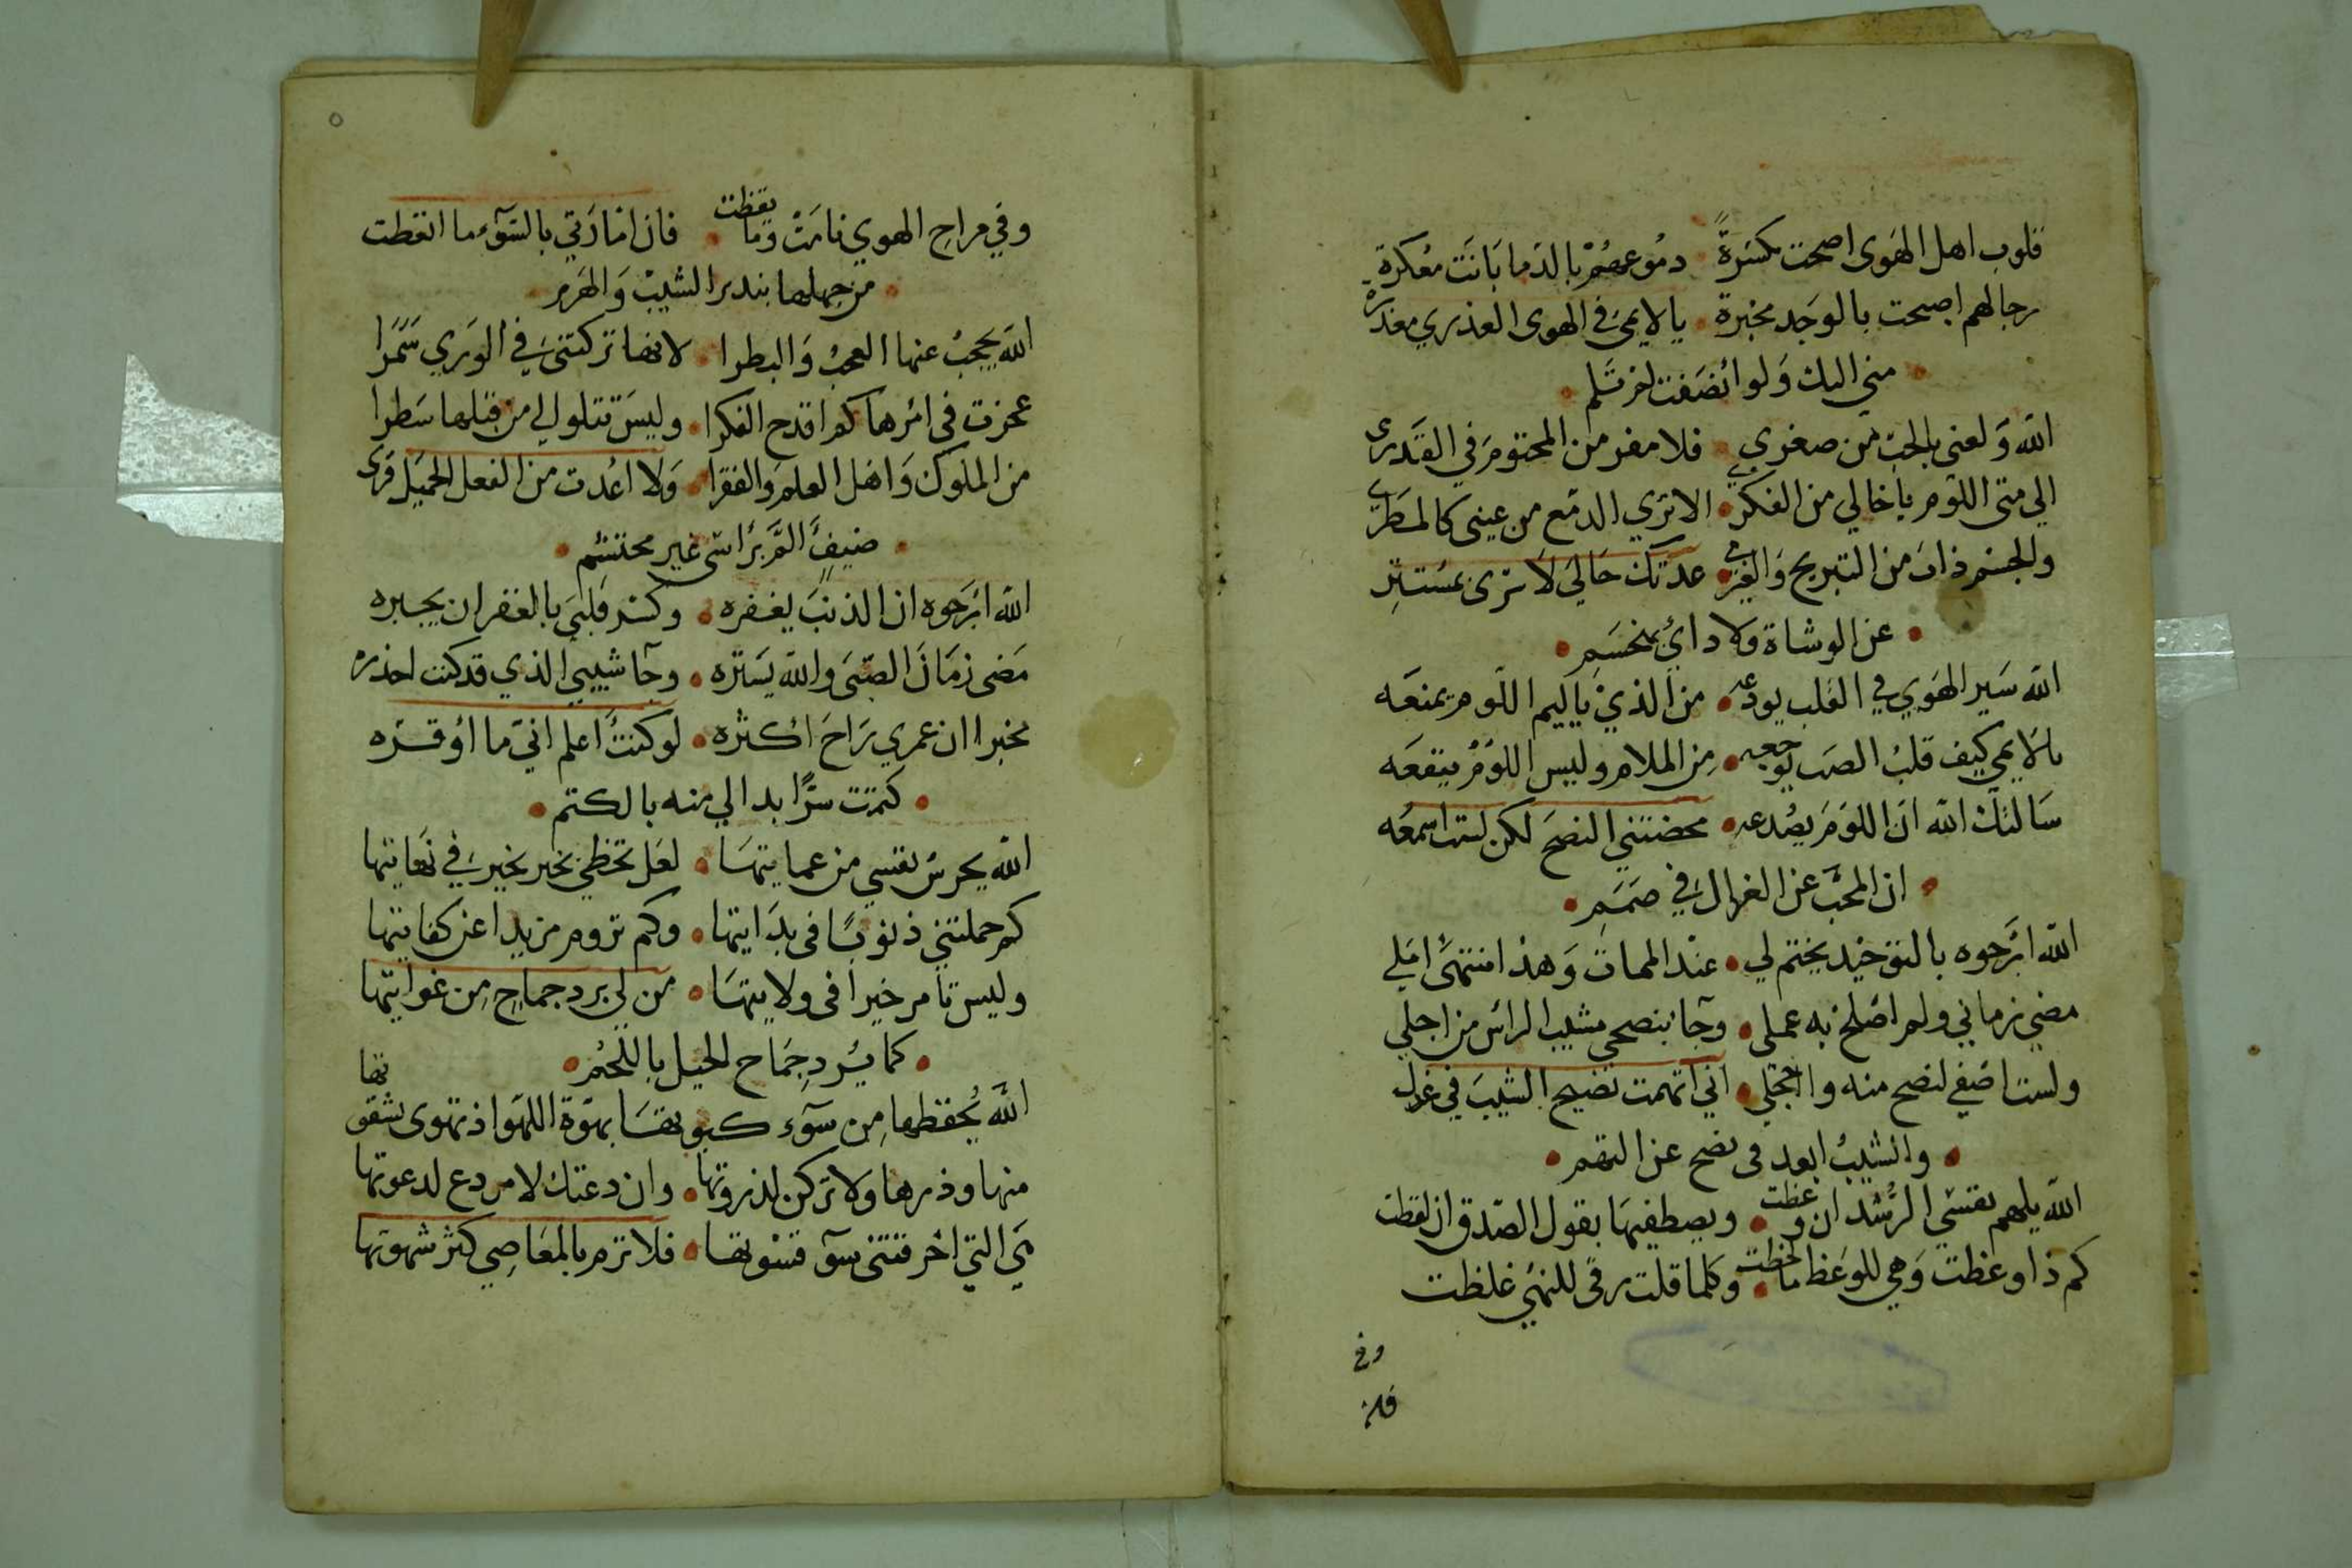 قلوب اهل الهوى اصبحت مكسرة دموعهم بالدما بانت معكرة
رجالهم اصبحت بالوجد مخبرة يا لايمي في الهوى العذري معذرة
مني اليك ولو انصفت لم تلم
الله ولعني بالحب من صغري فلا مفر من المحتوم في القدري
الي متى اللوم يا خالي من الفكر الا تري الدمع من عيني كالمطر
والجسم ذاب من التبريح والغير عدتك حالي لا سري بمستتر
عن الوشاة ولا دائي بمنحسم
الله سير الهوي في القلب يودعه من الذي ياليم اللوم يمنعه
يالايمي كيف قلب الصب توجعه من الملام وليس اللوم ينفعه
سالتك الله ان اللوم يصدعه محضتني النصح لكن لست اسمعه
ان المحب عن العذال في صمم
الله ارجوه بالتوحيد يختم لي عند الممات وهذا منتهى املي
مضي زماني ولم اصلح به عملي وجآ بنصحي مشيب الراس من اجلي
ولست اصغي لنصح منه وا خجلي اني اتهمت نصيح الشيب في عذل
والشيب ابعد في نصح عن التهم
الله يلهم نفسي الرشد ان وعظت ويصطفيها بقول الصدق ان لفظت
كم ذا وعظت وهي للوعظ ما لحظت وكلما قلت رقى للنهي غلظت
وفي
فان
٥
وفي مراح الهوي نامت وما يقظت فان امارتي بالسوء ما اتعظت
من جهلها بنذير الشيب والهرم
الله يحجب عنها العجب والبطرا لانها تركتني في الوري سمرا
عجزت في امرها كم اقدح الفكرا وليس تتلو لي من قبلها سطرا
من الملوك واهل العلم والفقرا ولا اعدت من الفعل الجميل قرى
ضيف الم براسي غير محتشم
الله ارجوه ان الذنب يغفره وكسر قلبي بالغفران يجبره
مضى زمان الصبى والله يستره وجآ شيبي الذي قد كنت احذره
مخبرا ان عمري راح اكثره لو كنت اعلم اني ما اوقره
كتمت سرا بدا لي منه بالكتم
الله يحرس نفسي من عمايتها لعل تحظي بخير في نهايتها
كم حملتني ذنوبا في بدايتها وكم تروم مزيدا عن كفايتها
وليس تامر خيرا في ولايتها من لي برد جماح من غوايتها
كما يرد جماح الخيل باللجم
الله يحفظها من سوء كبوتها بهوة اللهو اذ تهوى بشقوتها
منها وذرها ولا تركن لذروتها وان دعتك لامر دع لدعوتها
هي التي احرقتني سو قسوتها فلا ترم بالمعاصي كثر شهوتها